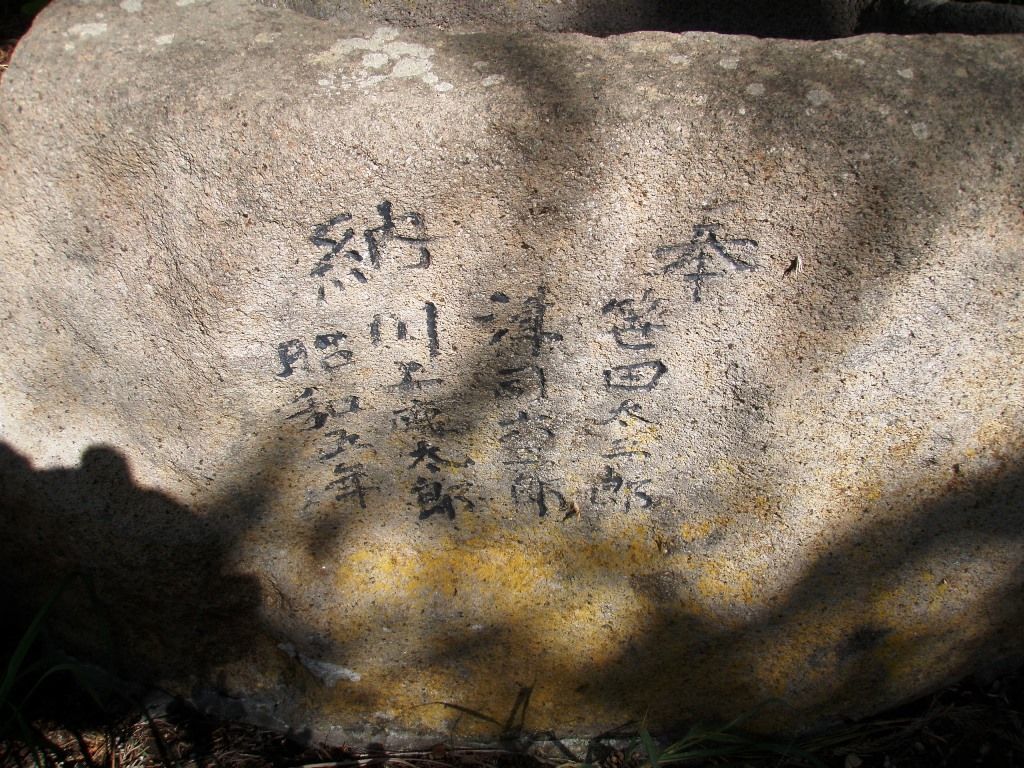 奉
笹田太三郎
津司与三郎
川上亀太郎
納
昭和五年